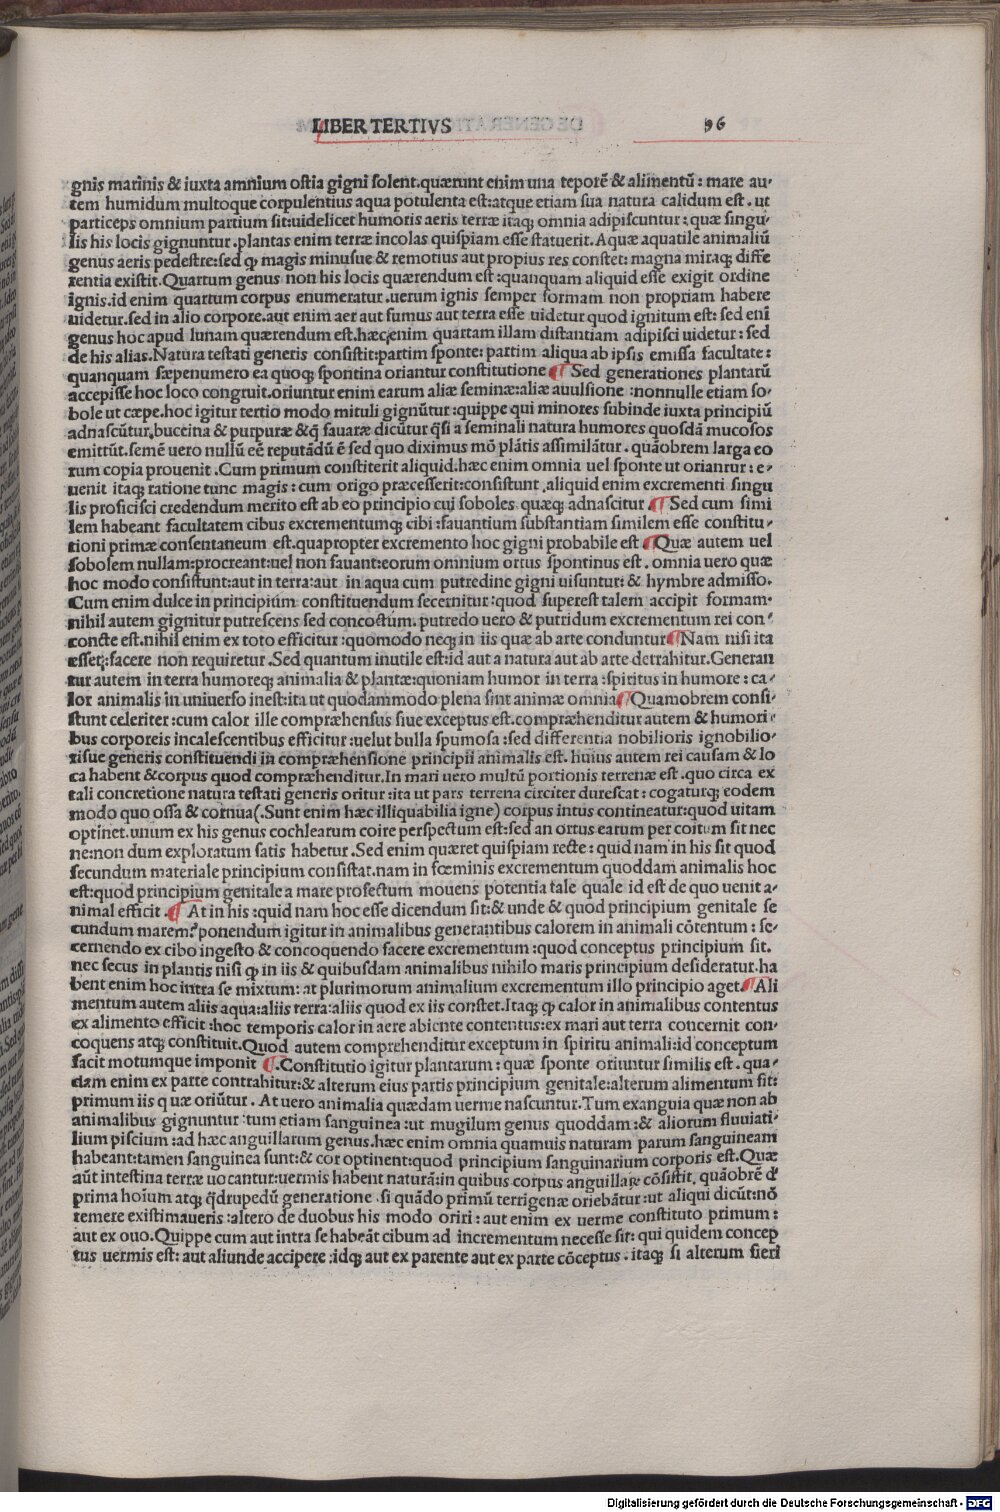 LIBER TERTIVS 96
gnis marinis & iuxta amnium ostia gigni solent.quærunt enim una teporē & alimentū : mare au-
tem humidum multoque corpulentius aqua potulenta est:atque etiam sua natura calidum est . ut
particeps omnium partium sit:uidelicet humoris aeris terræ itaq; omnia adipiscuntur : quæ singu-
lis his locis gignuntur .plantas enim terræ incolas quispiam esse statuerit.Aquæ aquatile animaliū
genus aeris pedestre:sed ꝙ magis minusue & remotius aut propius res constet: magna miraq; diffe
rentia existit.Quartum genus non his locis quærendum est :quanquam aliquid esse exigit ordine
ignis.id enim quartum corpus enumeratur .uerum ignis semper formam non propriam habere
uidetur.sed in alio corpore.aut enim aer aut fumus aut terra esse uidetur quod ignitum est: sed eni
genus hoc apud lunam quærendum est.hæc;enim quartam illam distantiam adipisci uidetur : sed
de his alias.Natura testati generis consistit:partim sponte: partim aliqua ab ipsis emissa facultate:
quanquam sæpenumero ea quoq; spontina oriantur constitutione ¶ Sed generationes plantarū
accepisse hoc loco congruit.oriuntur enim earum aliæ seminæ:aliæ auulsione :nonnulle etiam so-
bole ut cæpe.hoc igitur tertio modo mituli gignūtur :quippe qui minores subinde iuxta principiū
adnascūtur.buccina & purpuræ &q̄ fauaræ dicūtur q̄si a seminali natura humores quosdā mucosos
emittūt.semē uero nullū eē reputādū ē sed quo diximus mō plātis assimilātur . quāobrem larga eo
rum copia prouenit .Cum primum constiterit aliquid.hæc enim omnia uel sponte ut oriantur : e-
uenit itaq; ratione tunc magis : cum origo præcesserit:consistunt .aliquid enim excrementi singu
lis proficisci credendum merito est ab eo principio cui soboles quæq; adnascitur ¶ Sed cum simi
lem habeant facultatem cibus excrementumq; cibi :fauantium substantiam similem esse constitu-
tioni primæ consentaneum est.quapropter excremento hoc gigni probabile est ¶ Quæ autem uel
sobolem nullam:procreant:uel non fauant:eorum omnium ortus spontinus est . omnia uero quæ
hoc modo consistunt:aut in terra:aut in aqua cum putredine gigni uisuntur: & hymbre admisso.
Cum enim dulce in principium constituendum secernitur :quod superest talem accipit formam.
nihil autem gignitur putrescens sed concoctum. putredo uero & putridum excrementum rei con-
concte est.nihil enim ex toto efficitur :quomodo neq; in iis quæ ab arte conduntur ¶ Nam nisi ita
esset;:facere non requiretur .Sed quantum inutile est:id aut a natura aut ab arte detrahitur.Generan
tur autem in terra humoreq; animalia & plantæ:quoniam humor in terra :spiritus in humore : ca-
lor animalis in uniuerso inest:ita ut quodammodo plena sint animæ omnia ¶ Quamobrem consi-
stunt celeriter :cum calor ille compræhensus siue exceptus est.compræhenditur autem & humori-
bus corporeis incalescentibus efficitur :uelut bulla spumosa :sed differentia nobilioris ignobilio-
risue generis constituendi in compræhensione principii animalis est. huius autem rei causam & lo
ca habent &corpus quod compræhenditur.In mari uero multū portionis terrenæ est .quo circa ex
tali concretione natura testati generis oritur :ita ut pars terrena circiter durescat: cogaturq; eodem
modo quo ossa & cornua(.Sunt enim hæc illiquabilia igne) corpus intus contineatur:quod uitam
optinet.unum ex his genus cochlearum coire perspectum est:sed an ortus earum per coitum sit nec
ne:non dum exploratum satis habetur .Sed enim quæret quispiam recte : quid nam in his sit quod
secundum materiale principium consistat.nam in fœminis excrementum quoddam animalis hoc
est:quod principium genitale a mare profectum mouens potentia tale quale id est de quo uenit a-
nimal efficit . ¶ At in his :quid nam hoc esse dicendum sit:& unde & quod principium genitale se
cundum marem? ponendum igitur in animalibus generantibus calorem in animali cōtentum : se-
cernendo ex cibo ingesto & concoquendo facere excrementum :quod conceptus principium sit.
nec secus in plantis nisi ꝙ in iis & quibusdam animalibus nihilo maris principium desideratur.ha
bent enim hoc intra se mixtum: at plurimorum animalium excrementum illo principio aget. ¶ Ali
mentum autem aliis aqua:aliis terra:aliis quod ex iis constet.Itaq; ꝙ calor in animalibus contentus
ex alimento efficit :hoc temporis calor in aere abiente contentus:ex mari aut terra concernit con-
coquens atq; constituit.Quod autem comprehenditur exceptum in spiritu animali:id conceptum
facit motumque imponit ¶ .Constitutio igitur plantarum : quæ sponte oriuntur similis est . qua-
dam enim ex parte contrahitur:& alterum eius partis principium genitale:alterum alimentum sit:
primum iis quæ oriūtur . At uero animalia quædam uerme nascuntur.Tum exanguia quæ non ab
animalibus gignuntur :tum etiam sanguinea :ut mugilum genus quoddam :& aliorum fluuiati-
lium piscium :ad hæc anguillarum genus.hæc enim omnia quamuis naturam parum sanguineam
habeant:tamen sanguinea sunt:& cor optinent:quod principium sanguinarium corporis est.Quæ
aūt intestina terræ uocantur:uermis habent naturā:in quibus corpus anguillaꝝ cōsistit. quāobrē đ
prima hoīum atq; q̄drupedū generatione . si quādo primū terrigenæ oriebātur :ut aliqui dicūt:nō
temere existimaueris :altero de duobus his modo oriri : aut enim ex uerme constituto primum :
aut ex ouo.Quippe cum aut intra se habeāt cibum ad incrementum necesse sit: qui quidem concep
tus uermis est: aut aliunde accipere :idq; aut ex parente aut ex parte cōceptus . itaq; si alterum fieri
Digitalisierung gefördert durch die Deutsche Forschungsgemeinschaft - DFG